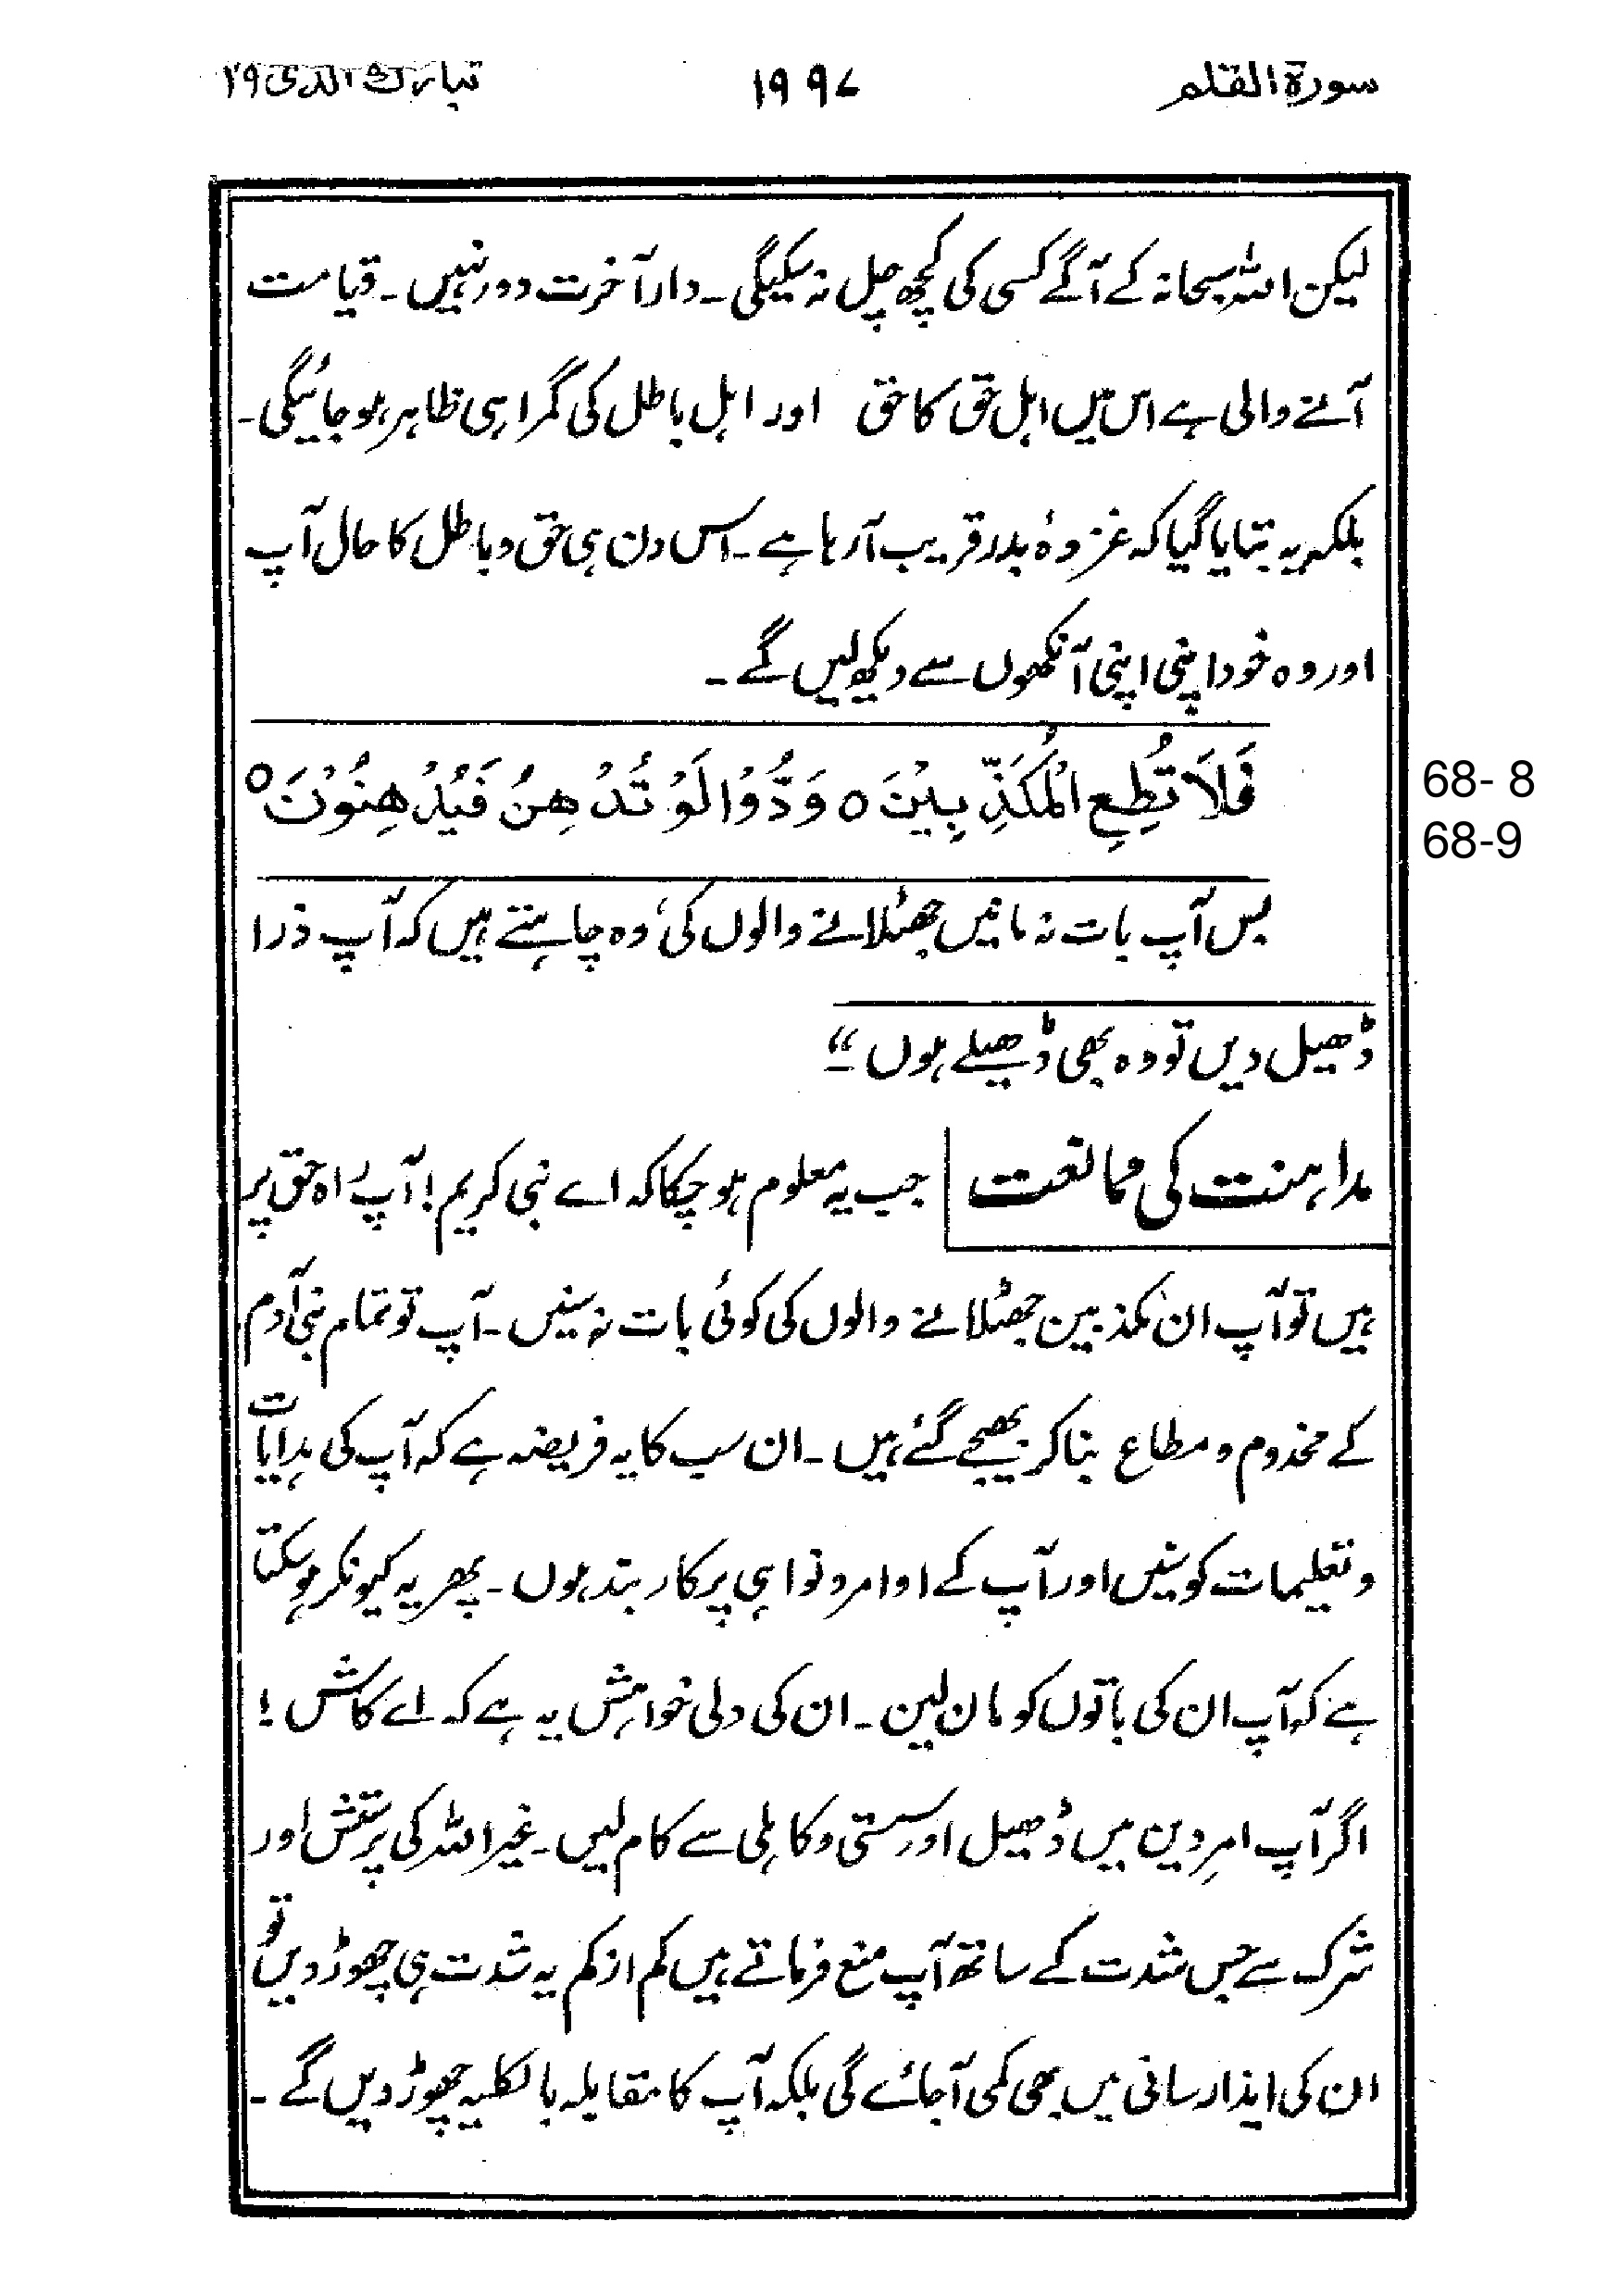 سورۃ القلم ۱۹۹۷ تبارک الذی ۲۹
لیکن اللہ سبحانہ کے آگے کسی کی کچھ چل نہ سکیگی ۔ دار آخرت دور نہیں ۔ قیامت
آنے والی ہے اس میں اہل حق کا حق اور اہل باطل کی گمراہی ظاہر ہو جائیگی ۔
بلکہ یہ بتایا گیا کہ غزوۂ بدر قریب آرہا ہے ۔ اس دن ہی حق و باطل کا حال آپ
اور وہ خود اپنی اپنی آنکھوں سے دیکھ لیں گے ۔
فَلَا تُطِعِ الْمُكَذِّبِيْنَ ○ وَدُّوْا لَوْ تُدْهِنُ فَيُدْهِنُوْنَ ○
68- 8
68-9
بس آپ بات نہ مانیں جھٹلانے والوں کی، وہ چاہتے ہیں کہ آپ ذرا
ڈھیل دیں تو وہ بھی ڈھیلے ہوں ۔"
مداہنت کی ممانعت جب یہ معلوم ہو چکا کہ اے نبی کریم! آپ راہ حق پر
ہیں تو آپ ان مکذبین جھٹلانے والوں کی کوئی بات نہ سنیں ۔ آپ تو تمام بنی آدم
کے مخدوم و مطاع بنا کر بھیجے گئے ہیں ۔ ان سب کا یہ فریضہ ہے کہ آپ کی ہدایات
و تعلیمات کو سنیں اور آپ کے اوامر و نواہی پر کاربند ہوں ۔ پھر یہ کیونکر ہو سکتا
ہے کہ آپ ان کی باتوں کو مان لیں ۔ ان کی دلی خواہش یہ ہے کہ اے کاش !
اگر آپ امرِ دین میں ڈھیل اور سستی و کاہلی سے کام لیں ۔ غیر اللہ کی پرستش اور
شرک سے جس شدت کے ساتھ آپ منع فرماتے ہیں کم از کم یہ شدت ہی چھوڑ دیں تو
ان کی ایذا رسانی میں بھی کمی آجائے گی بلکہ آپ کا مقابلہ بالکلیہ چھوڑ دیں گے ۔